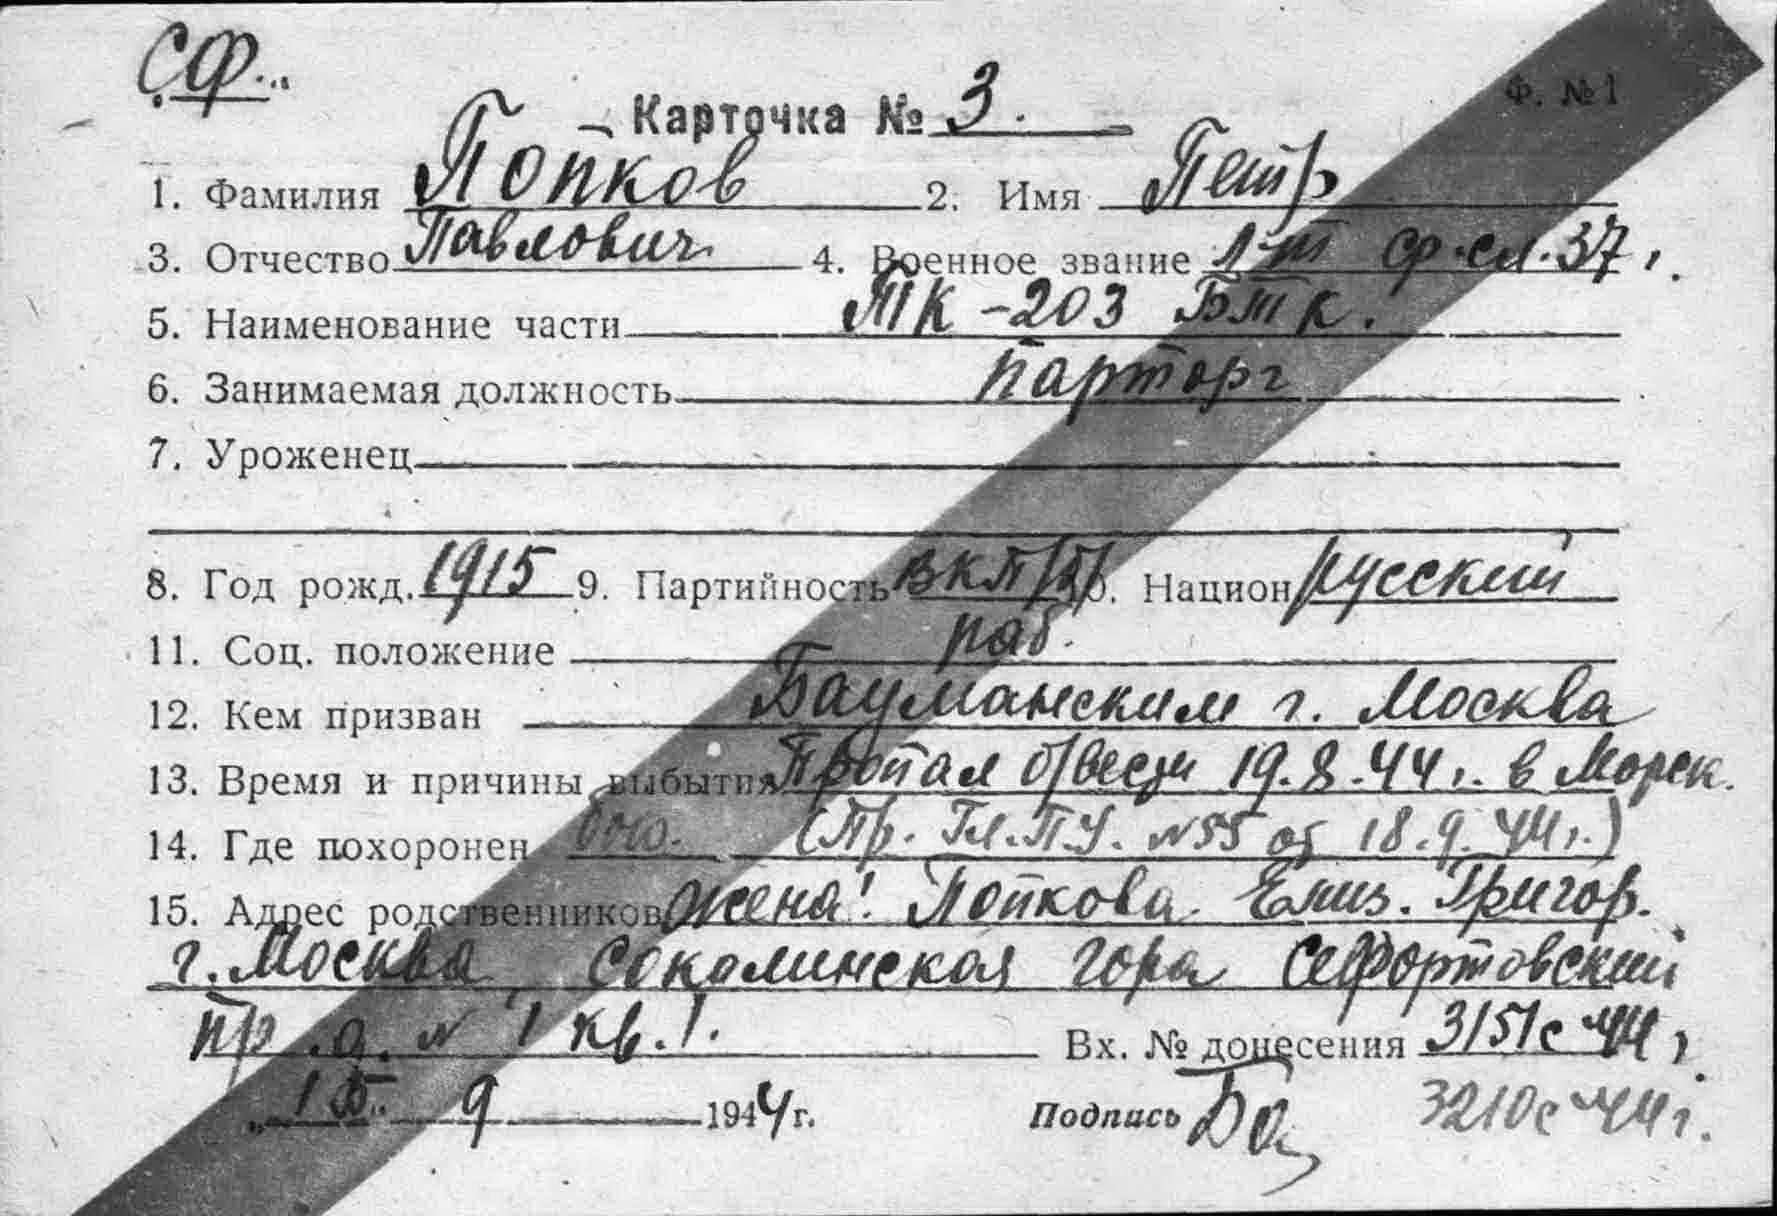 СФ.
Ф. №1
Карточка № 3.
1. Фамилия Попков 2. Имя Петр
3. Отчество Павлович 4. Военное звание л-т ср.сл. 37 г.
5. Наименование части ТК-203 БТК.
6. Занимаемая должность парторг
7. Уроженец
8. Год рожд. 1915 9. Партийность ВКП/б/ 10. Национ русский
11. Соц. положение раб.
12. Кем призван Бауманским г. Москва
13. Время и причины выбытия Пропал б/вести 19.8.44 г. в Морск.
14. Где похоронен бою. (Пр. Гл.П.У. №55 от 18.9.44 г.)
15. Адрес родственников жена! Попкова Елиз. Григор.
г. Москва, соколинская гора Сефортовский
пр. д. № 1 кв. 1.
Вх. № донесения 3151с 44 г.
„15" 9 1944 г. Подпись 3210с 44 г.